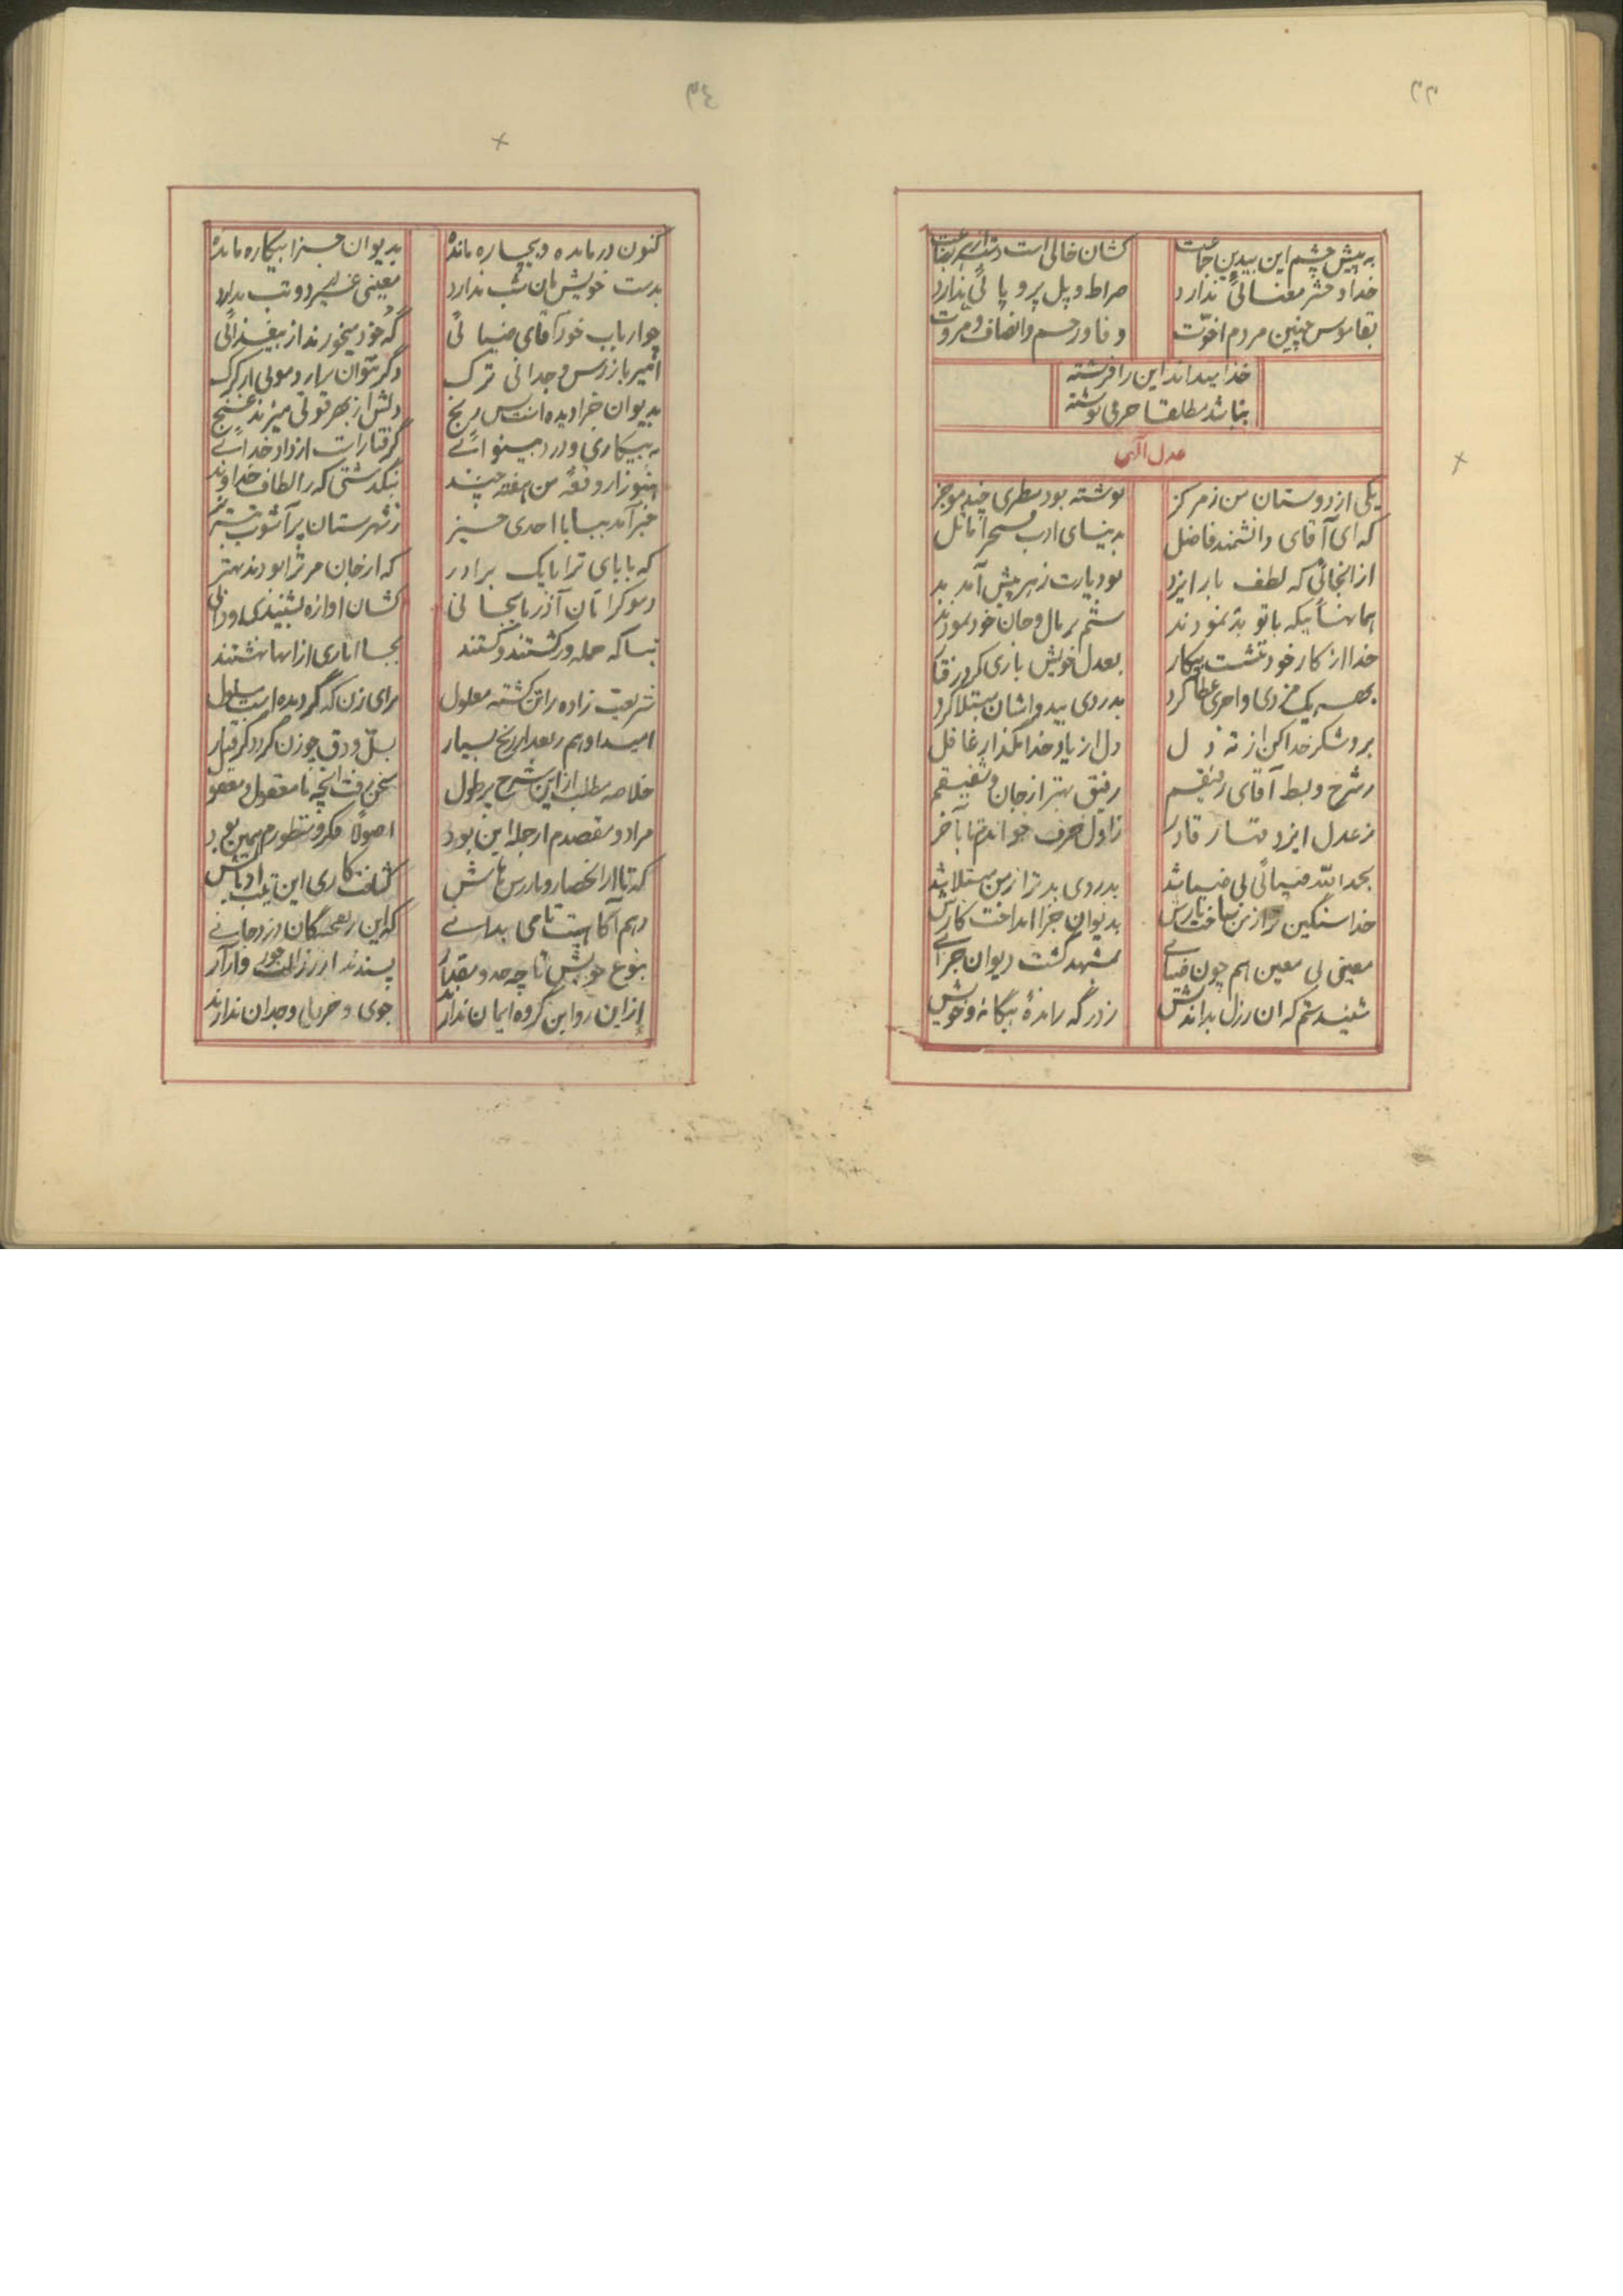 ۳۳
به پیش چشم این بیدین جماعت
کشان خالی است دست از هر بضاعت
خدا و حشر معنائی ندارد
صراط و پل پر و پائی ندارد
بقاموس چنین مردم اخوّت
وفا و رحم و انصاف و مروت
خدا میداند این را فرشته
نباشد مطلقا حرفی نوشته
عدل الهی
یکی از دوستان من ز مرکز
نوشته بود سطری چند موجز
که ای آقای دانشمند فاضل
به بینای ادب
از انجائی که لطف بار ایزد
بود یارت زهر پیش آمد بد
همانهائیکه با تو بد نمودند
ستم بر مال و جان خود نمودند
خدا از کار خود ننشست بیکار
بعدل خویش بازی کرد رفتار
بهر یک مزدی و اجری عطا کرد
بدردی بیدواشان مبتلا کرد
برو شکر خدا کن از ته دل
دل از یاد خدا مگذار غافل
ز شرح و بسط آقای رفیقم
رفیق بهتر از جان و شفیقم
ز عدل ایزد قهار قادر
ز اول حرف خواندم تا بآخر
بحمدالله ضیائی بی ضیا شد
بدردی بدتر از من مبتلا شد
خدا سنگین تر از زین ساخت بارش
بدیوان جزا انداخت کارش
معینی بی معین هم چون ضیائی
بمشهد گشت دیوان جزائی
شنیدستم که ان رذل بداندیش
ز درگه راندهٔ بیگانه و خویش
۳٤
کنون درمانده و بیچاره مانده
بدیوان جزا بیکاره مانده
بدست خویش نان شب ندارد
معینی غیر درد و تب ندارد
چو ارباب خود آقای ضیائی
گه خود میخورند از بیغذائی
امیر بازرس وجدانی ترک
دگر نتوان برارد موئی از کرک
بدیوان جزا دیده است بس رنج
دلش از بهر قوتی میزند غنج
به بیکاری و درد بینوائی
گرفتار است از داد خدائی
هنوز از وقعهٔ من هفتهٔ چند
نبگذشتی که ز الطاف خداوند
خبر آمد ببابا احدی نیز
ز شهرستان پر آشوب تبریز
که بابای ترا با یک برادر
که از جان مر ترا بودند بهتر
دموکراتان آذربایجانی
کشان اوازه بشنیدی و دانی
بناگه حمله ور گشتند و کشتند
بجا اثاری از انها نهشتند
شریعت زاده را تن گشته معلول
برای زن که گردیده است مسلول
امید او هم بعد از رنج بسیار
بسلّ و دق چو زن گردد گرفتار
خلاصه مطلب از این شرح پر طول
سخن رفت انچه نامعقول و معقول
مراد و مقصدم از جمله این بود
اصولا فکر و منظورم همین بود
که تا از انحصار و بازرس هاش
کثافت کاری این تیپ اوباش
بهم آگاهیت تامی بدانی
که این
بنوع خویش تا چه حد و مقدار
پسندند از رذالت جور و آزار
از این رو این گروه ایمان ندارند
جوی وجدان ندارند